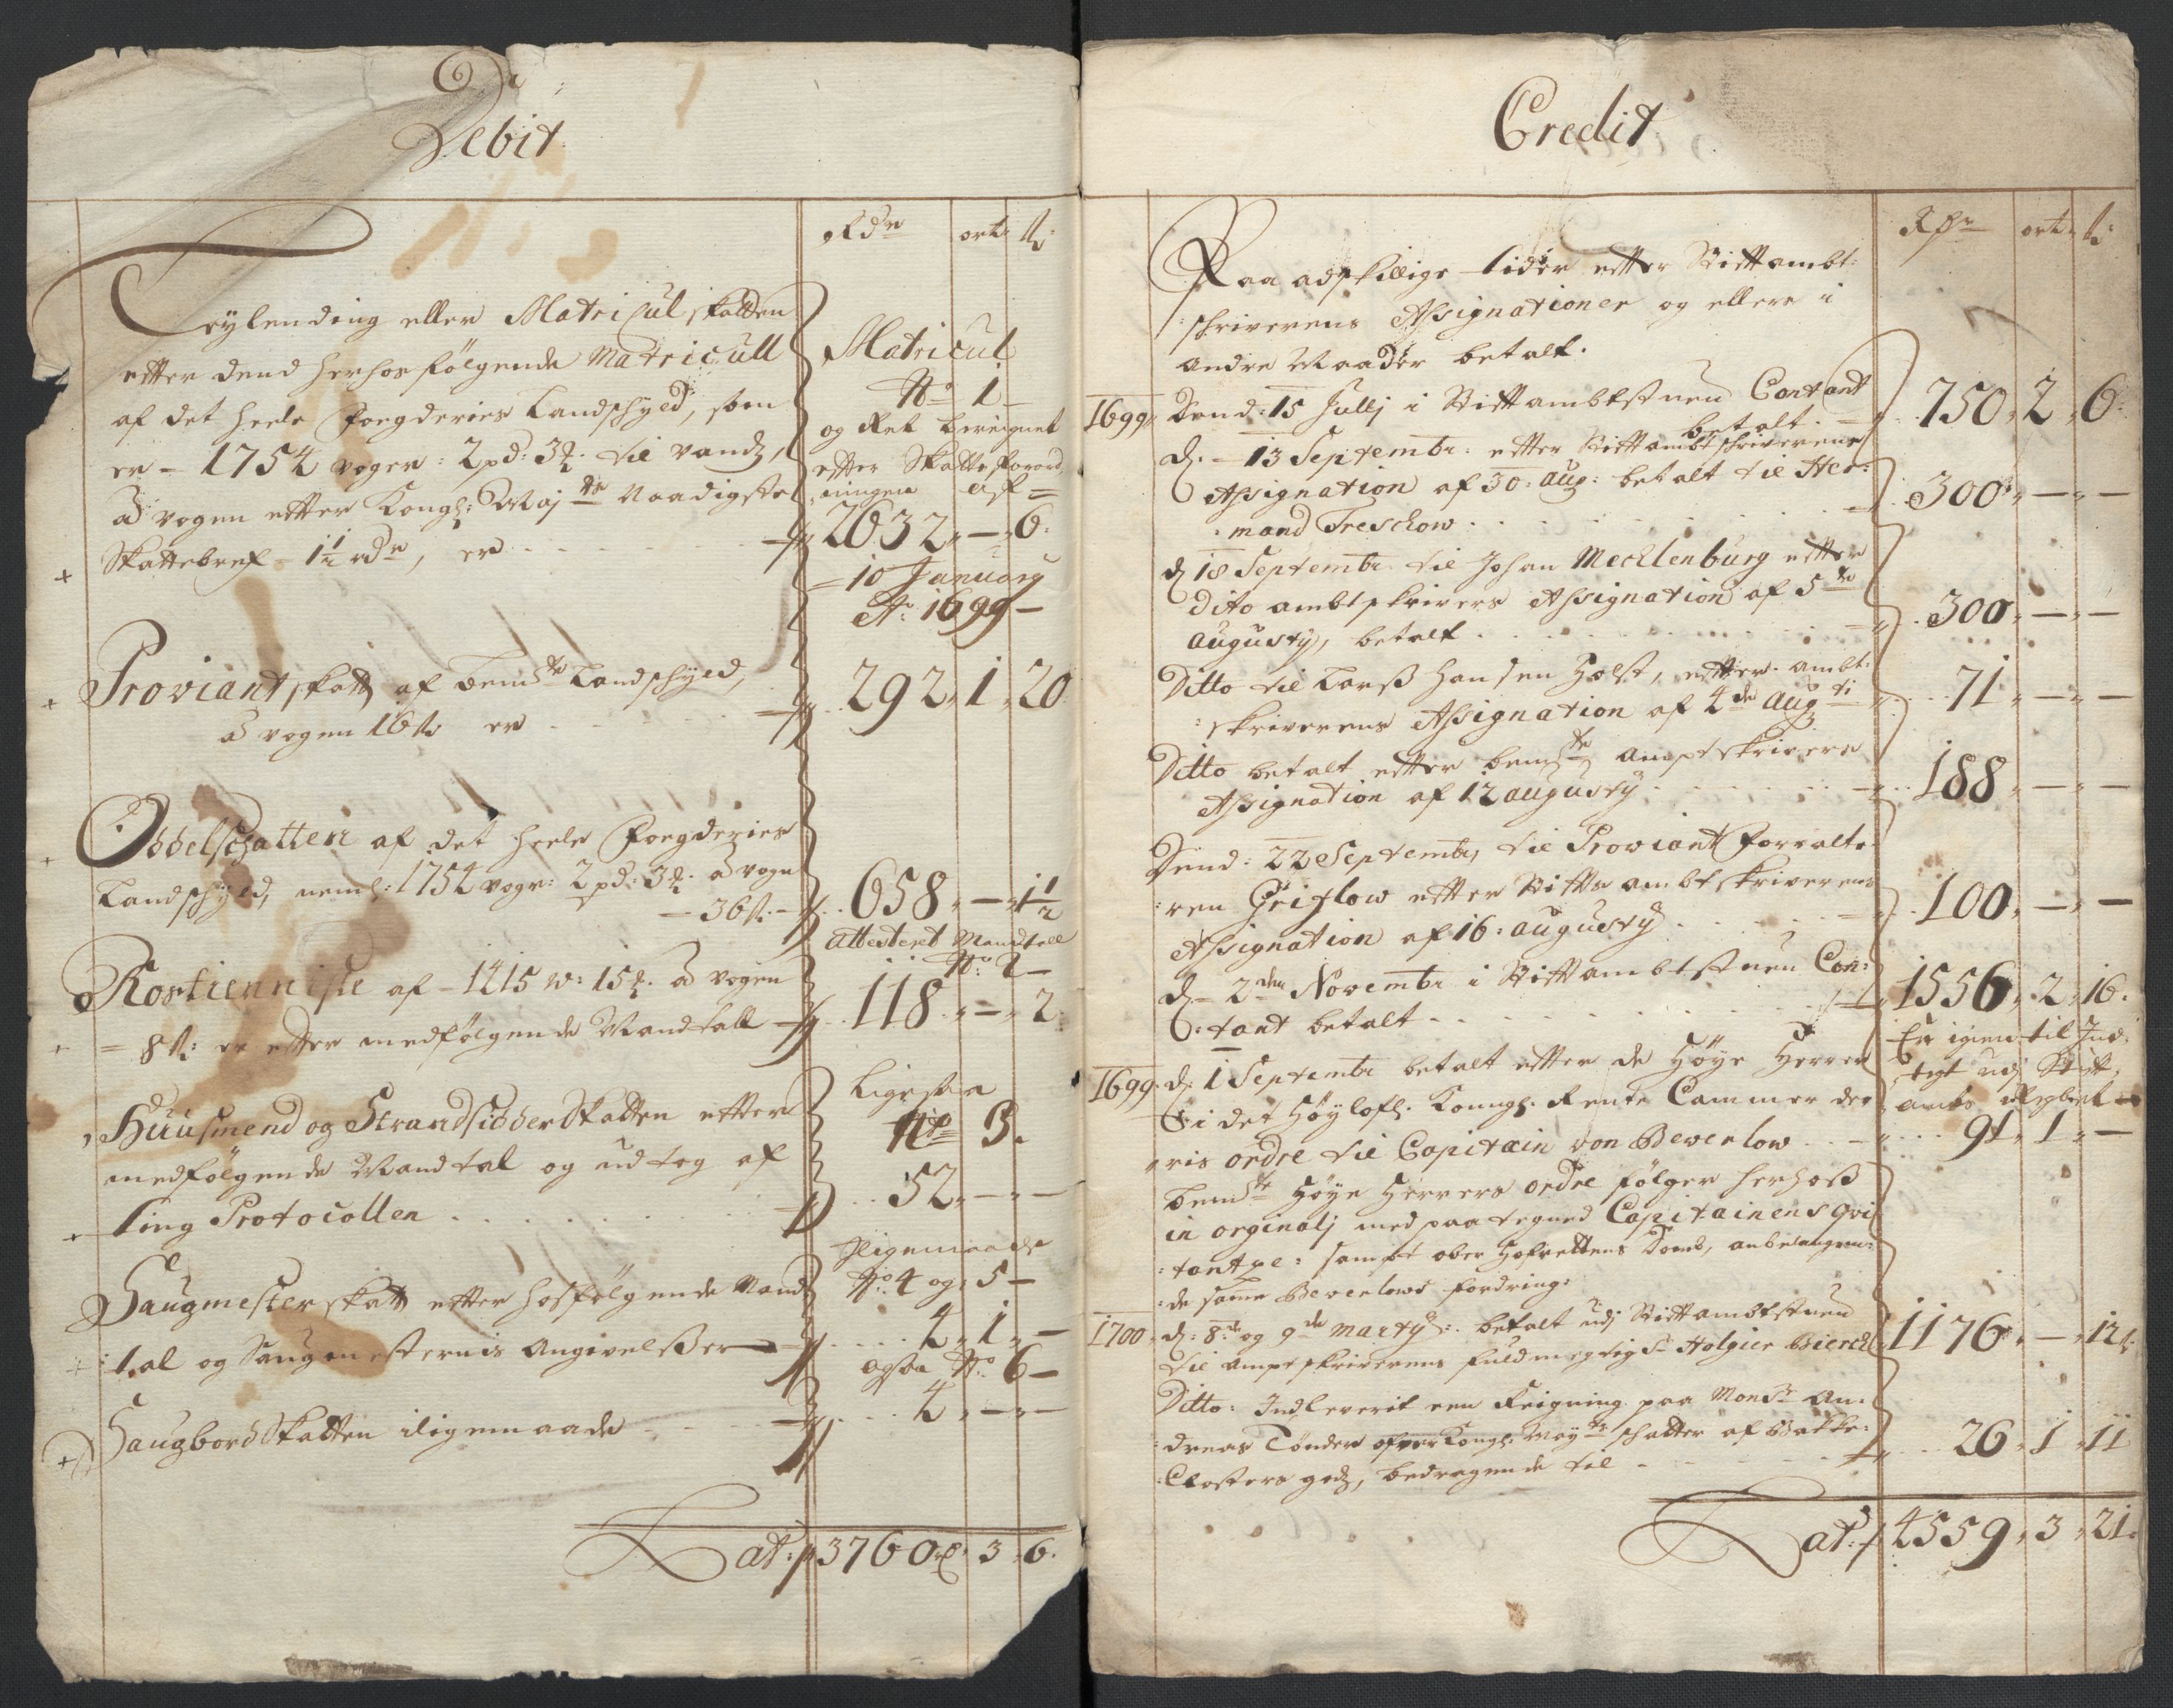 Debit
Rdr ort ß:
Leylending eller Matricul skatten
efter dend herhos følgende Matricull
af det heele Foegderies Landschyld, som
er - 1754 voger: 2 pd: 3 ℔. til vands,
à vogen efter Kongl: Maj:ts Naadigste
Skattebref 1½ rdr, er
Matricul
No 1
og Ret bereignet
efter Skatteforord
ningen af
2632 - 6
10 January
Ao 1699
Proviantskatt af bemte Landschyld,
à vogen 16 ß er
292 1 20
Oddelschatten af det heele Foegderies
Landschyld, neml: 1754 vogr: 2 pd: 3 ℔: à vogn
36 ß:
658 - 1½
Attesteret Mandtall
No 2
Rostienniste af - 1415 w: 15 ℔. à vogen
8 ß: er efter medfølgende Mandtall
118 - 2
Huusmend og Strandsidder Skatten efter
medfølgende Mandtal og udtog af
ting Protocollen
Ligesaa
No 3.
52 - -
Saugmester skatt efter hosfølgende Mand
tal og Saugmesternis Angivelsser
Ligemaade
No 4 og 5
4 1 -
ogsaa No 6
Saugbord Skatten iligemaade
4 - -
Lat: 3760 rd 3 6.
Credit
Rdr ort ß:
Paa adskillige tider efter Stiftambt:
schriverens Assignationer og ellers i
andre Maader betalt.
1699 Dend: 15 Julij i Stiftambtstuen Contant
betalt. 750 2 6
d. 13 Septembr: efter Stiftambtschriverens
Assignation af 30: aug: betalt til Her:
mand Treschow 300 - -
d 18 Septembr til Johan Mecklenburg efter
Dito ambtskrivers Assignation af 5te
augusty, betalt 300 - -
Ditto til Larss Hansen Holst, efter ambt:
skriverens Assignation af 4de Augti 71 - -
Ditto betalt efter bemte amptskrivers
Assignation af 12 augusty 188 - -
Dend: 22 Septembr, til Proviant Forvalte
ren Griflow efter Stifts ambtskriverens
Assignation af 16: augusty 100 - -
d. 2den Novembr i Stiftambtstuen Con:
tant betalt 1556 2 16.
Er igien til Ind
tegt udj Stift
ambts
1699 d. 1 Septembr betalt efter de Høye Herrer
i det Høylofl. Kongl. Rente Cammer de
ris ordre til Capitain von Bewerlow 91 1 -
bemte Høye Herrers ordre følger herhoss
in orginalj med paategned Capitainens qvi
tantze: sampt ober Hofrettens Domb, anbelangen:
de samme Bewerlows fordring:
1700 d: 8de og 9de Marty: betalt udj Stiftambtstuen
til amptskriverens fuldmegtig Sr Holgier Bierck 1176 - 12
Ditto: Indleverit een Reigning paa Monsr An:
dreas Tønder ofver Kongl: Mayts schatter af Bakke:
Closters gods, bedragende til 26 1 11
Lat: 4559 3 21.